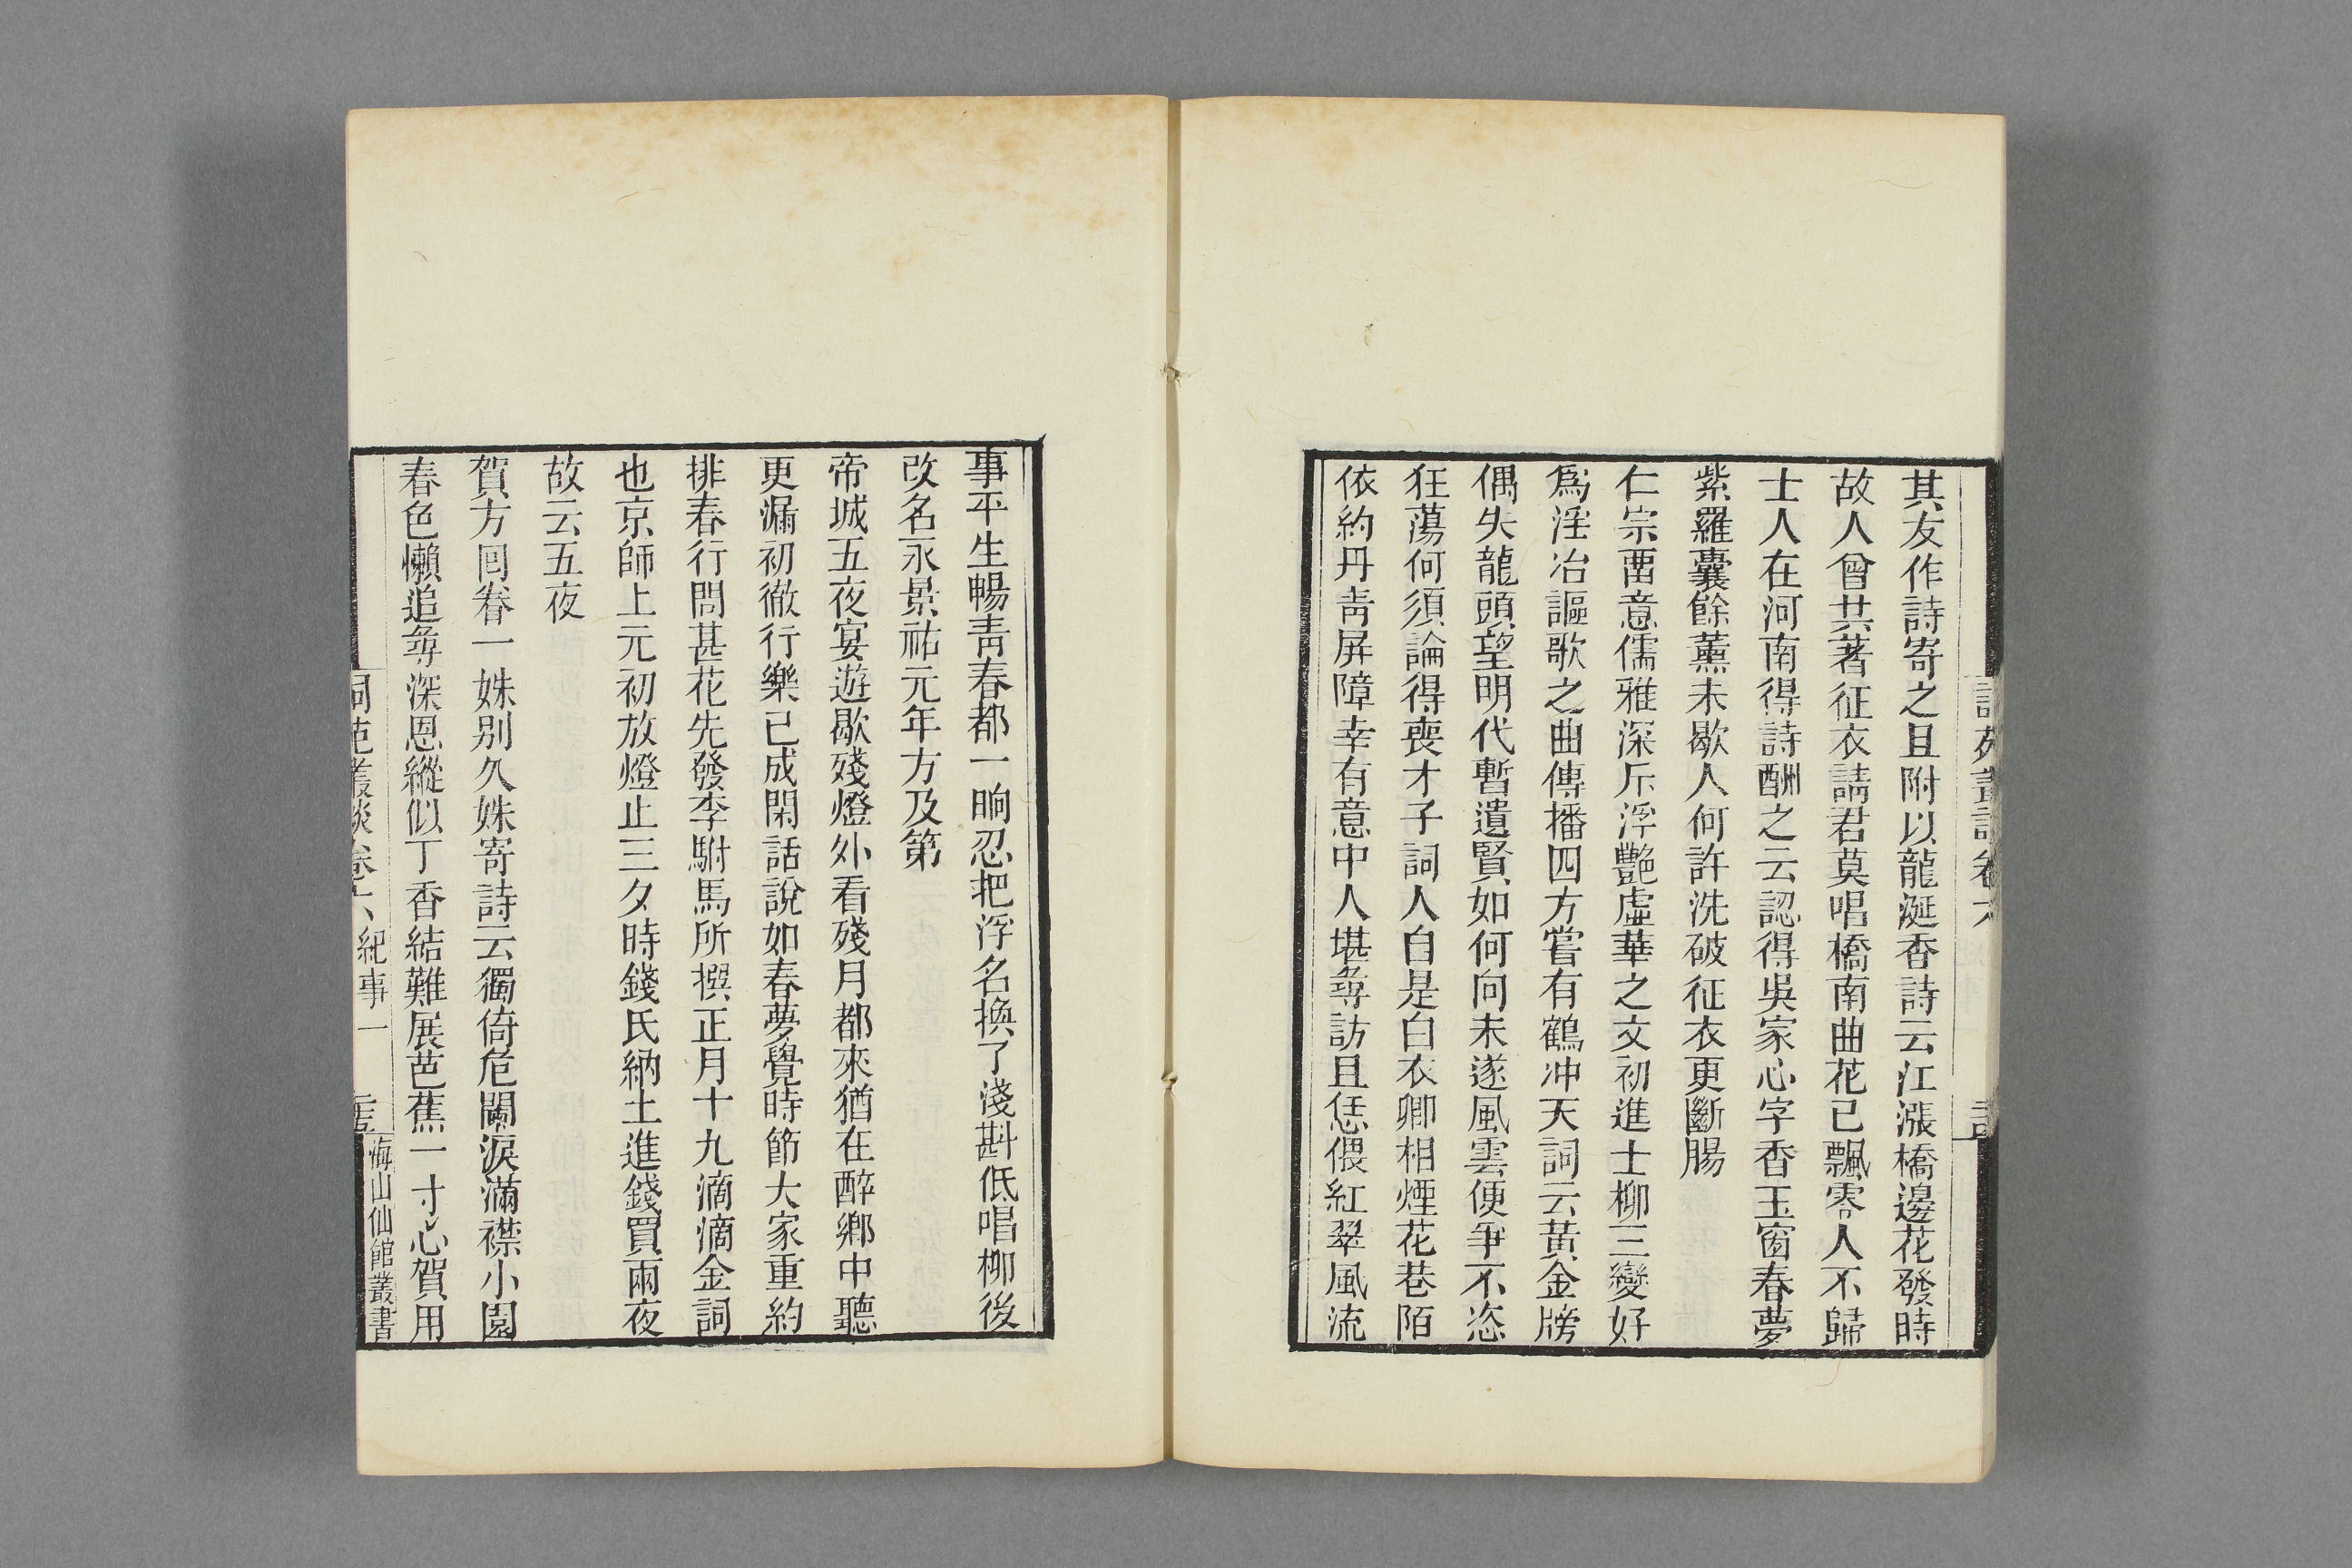 其友作詩寄之且附以龍涎香詩云江漲橋邊花發時
故人曾共著征衣請君莫唱橋南曲花已飄零人不歸
士人在河南得詩酬之云認得吳家心字香玉窗春夢
紫羅囊餘薰未歇人何許洗破征衣更斷腸
仁宗畱意儒雅深斥浮艷虛華之文初進士柳三變好
爲淫冶謳歌之曲傳播四方嘗有鶴冲天詞云黃金牓
偶失龍頭望明代暫遺賢如何向未遂風雲便爭不恣
狂蕩何須論得喪才子詞人自是白衣卿相煙花巷陌
依約丹靑屏障幸有意中人堪尋訪且恁偎紅翠風流
事平生暢靑春都一晌忍把浮名換了淺斟低唱柳後
改名永景祐元年方及第
帝城五夜宴遊歇殘燈外看殘月都來猶在醉鄉中聽
更漏初徹行樂已成閑話說如春夢覺時節大家重約
排春行問甚花先發李駙馬所撰正月十九滴滴金詞
也京師上元初放燈止三夕時錢氏納土進錢買兩夜
故云五夜
賀方囘眷一姝别久姝寄詩云獨倚危闌淚滿襟小園
春色懶追尋深恩縱似丁香結難展芭蕉一寸心賀用
詞苑叢談卷六 紀事一
海山仙館叢書